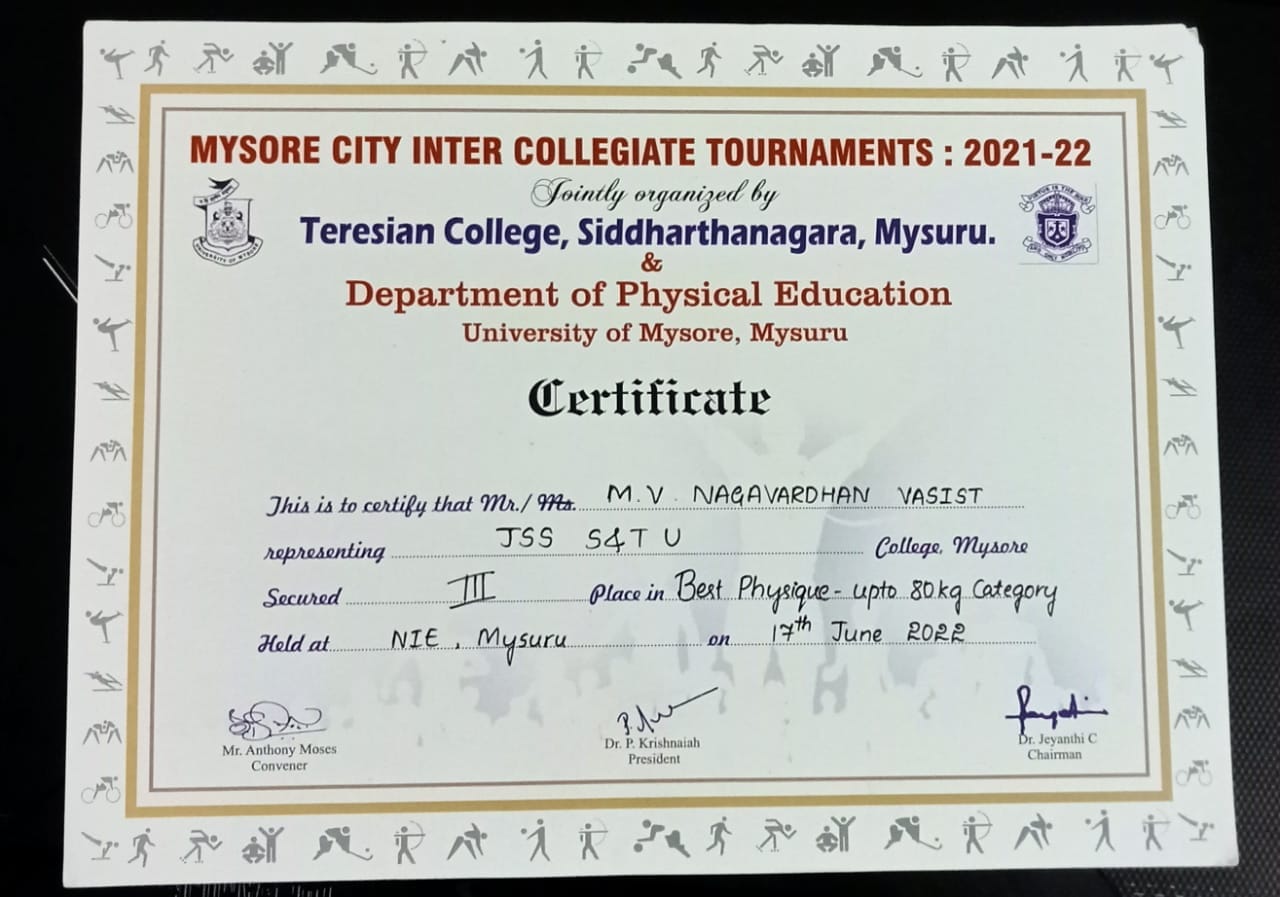 MYSORE CITY INTER COLLEGIATE TOURNAMENTS : 2021-22
Jointly organized by
Teresian College, Siddharthanagara, Mysuru.
&
Department of Physical Education
University of Mysore, Mysuru
Certificate
This is to certify that Mr./ Ms. M.V. NAGAVARDHAN VASIST
representing JSS S&TU College, Mysore
Secured III Place in Best Physique - upto 80kg Category
Held at NIE, Mysuru on 17th June 2022
Mr. Anthony Moses
Convener
Dr. P. Krishnaiah
President
Dr. Jeyanthi C
Chairman